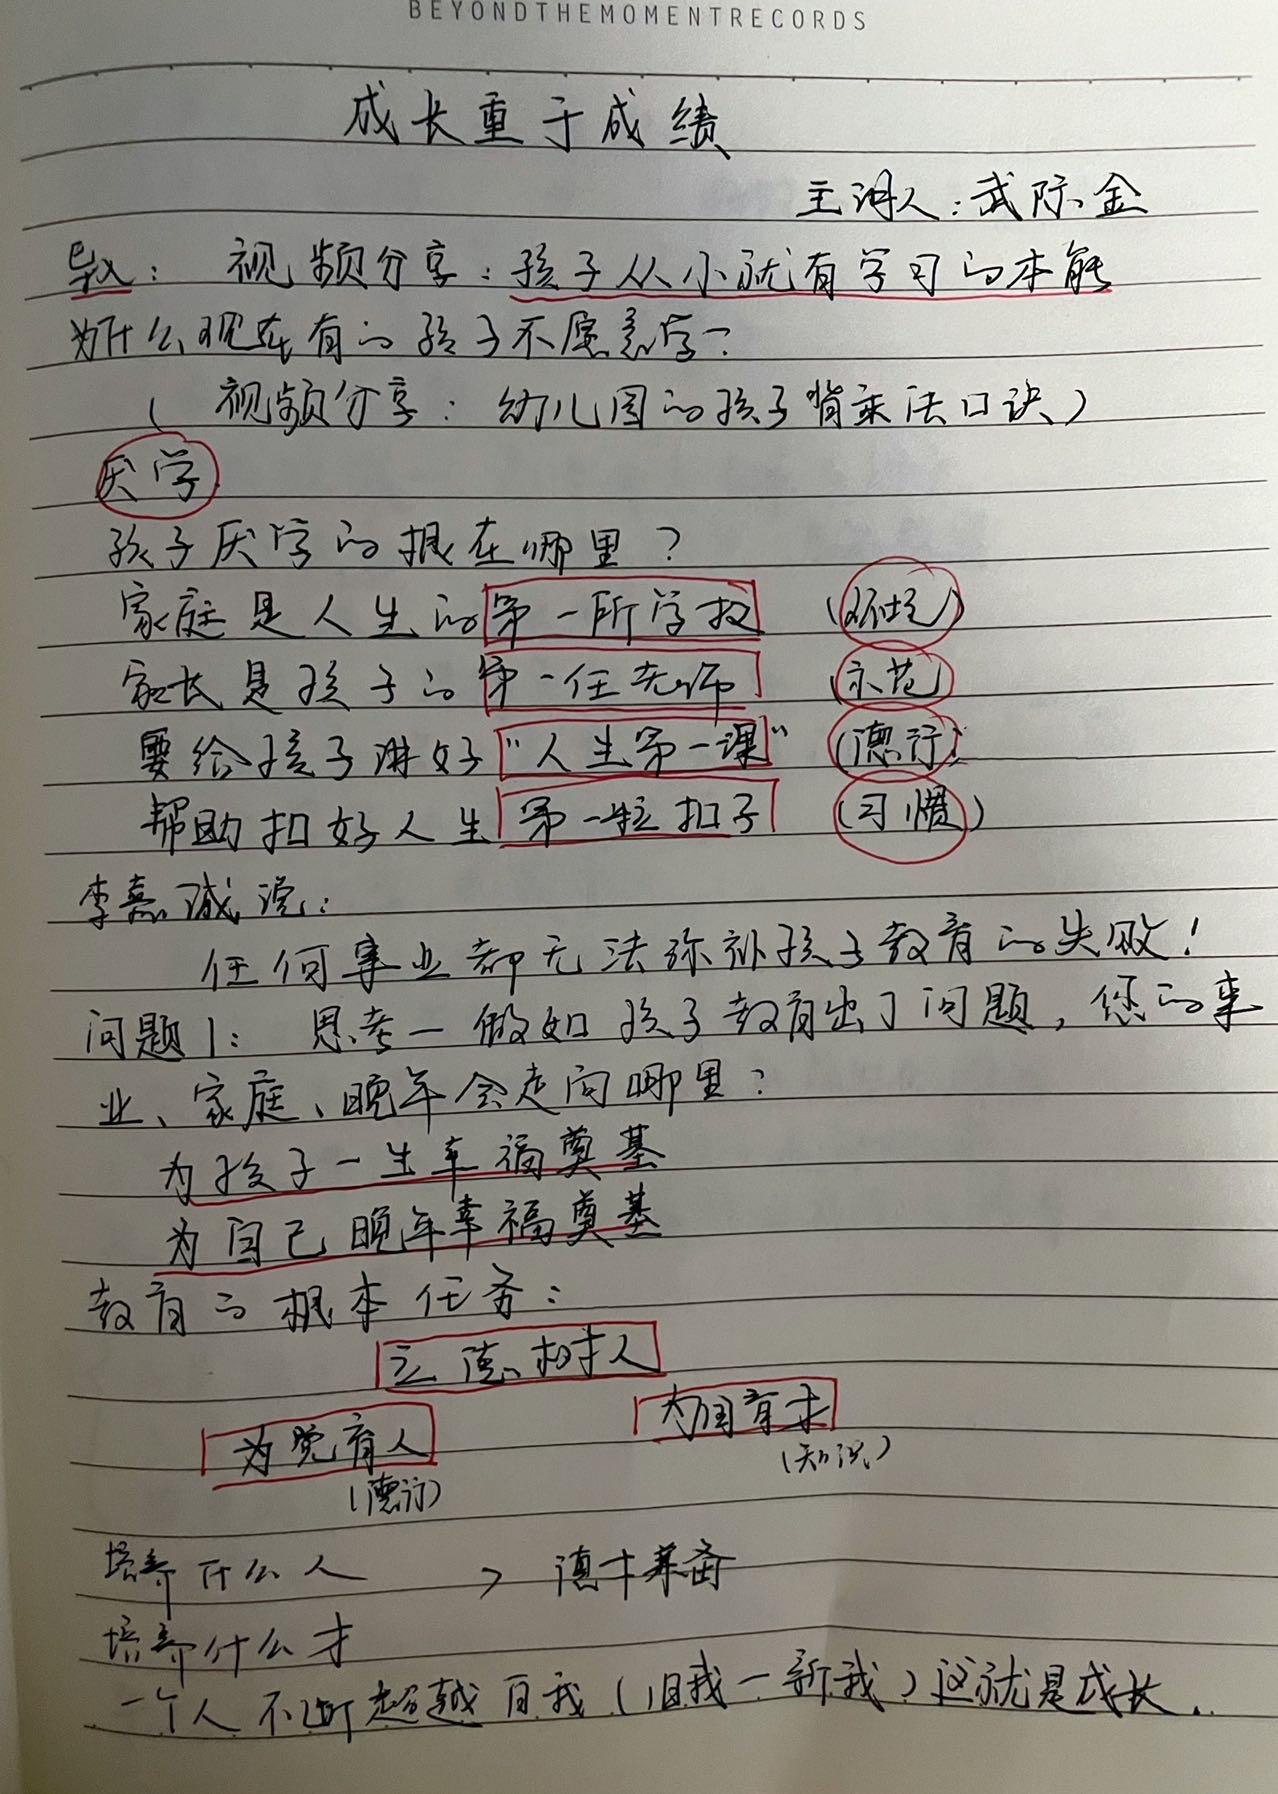 BEYONDTHEMOMENTRECORDS
成长重于成绩
主讲人:武际金
导入: 视频分享:孩子从小就有学习的本能
为什么现在有的孩子不愿意学?
( 视频分享: 幼儿园的孩子背乘法口诀)
厌学
孩子厌学的根在哪里?
家庭是人生的第一所学校 (环境)
家长是孩子的第一任老师 (示范)
要给孩子讲好“人生第一课” (德行)
帮助扣好人生第一粒扣子 (习惯)
李嘉诚说:
任何事业都无法弥补孩子教育的失败!
问题1: 思考一假如孩子教育出了问题,您的事
业、家庭、晚年会走向哪里?
为孩子一生幸福奠基
为自己晚年幸福奠基
教育的根本任务:
立德树人
为党育人 为国育才
(德行) (知识)
培养什么人 > 德才兼备
培养什么才
一个人不断超越自我(旧我一新我)这就是成长.